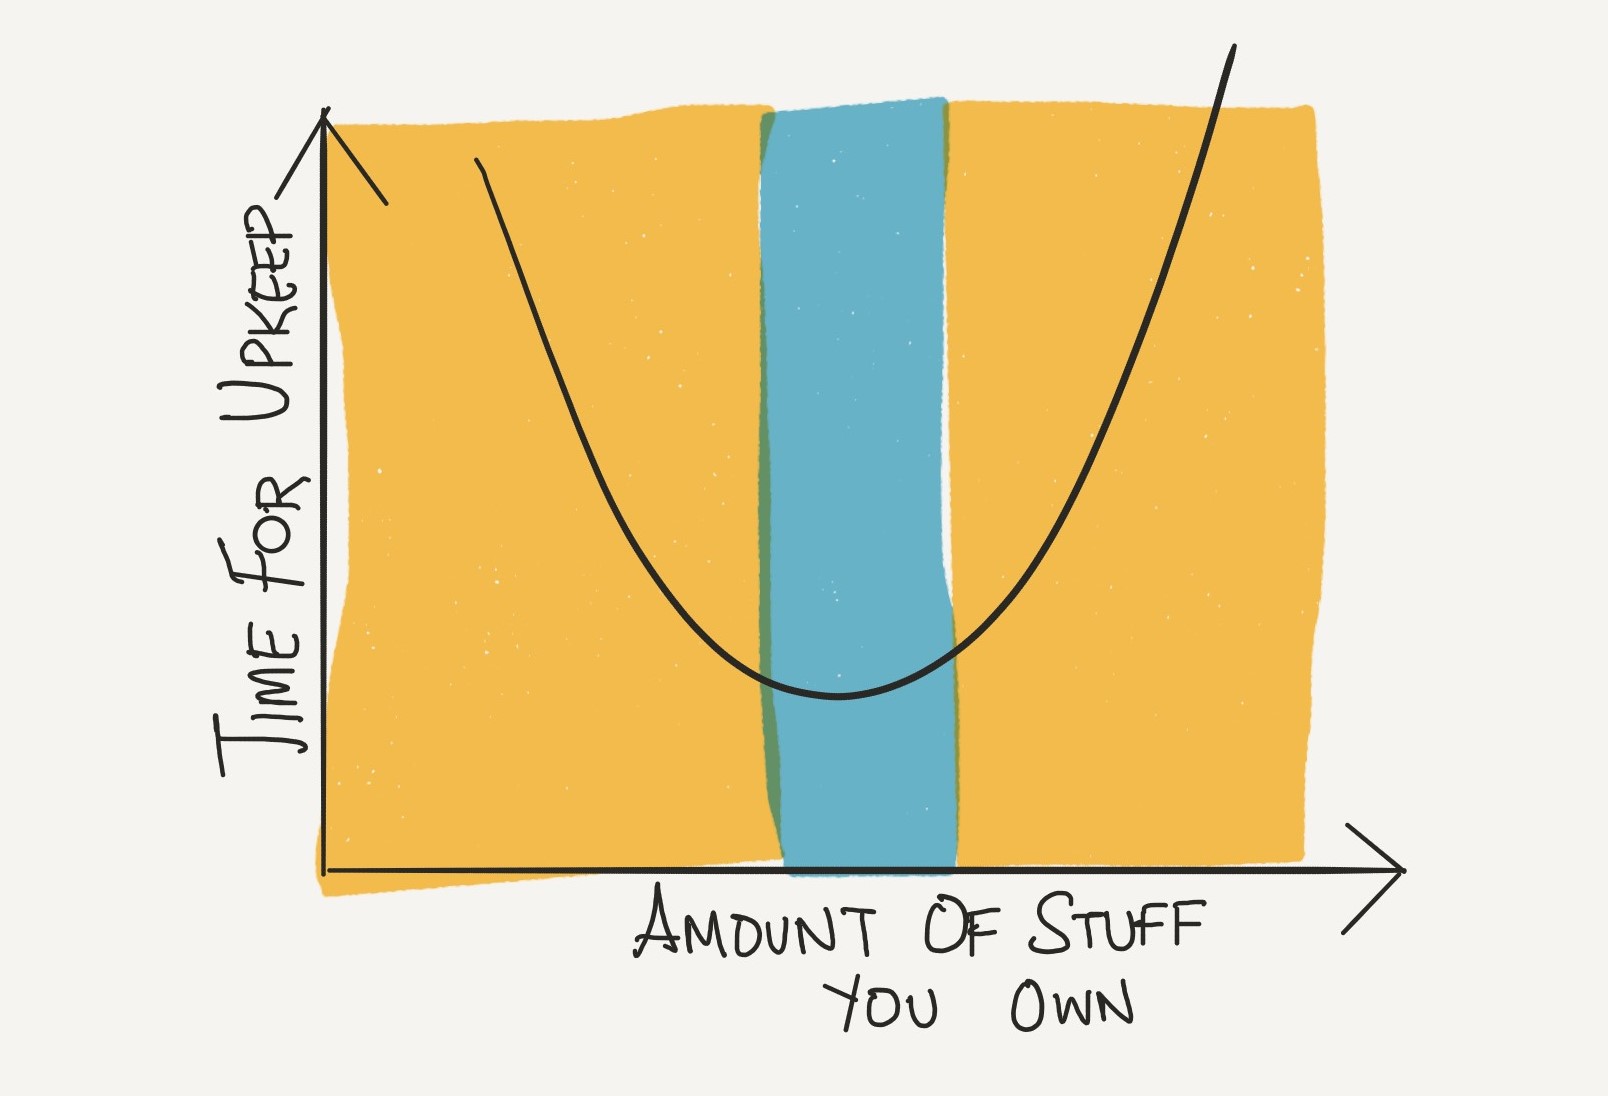 TIME FOR UPKEEP
AMOUNT OF STUFF
YOU OWN